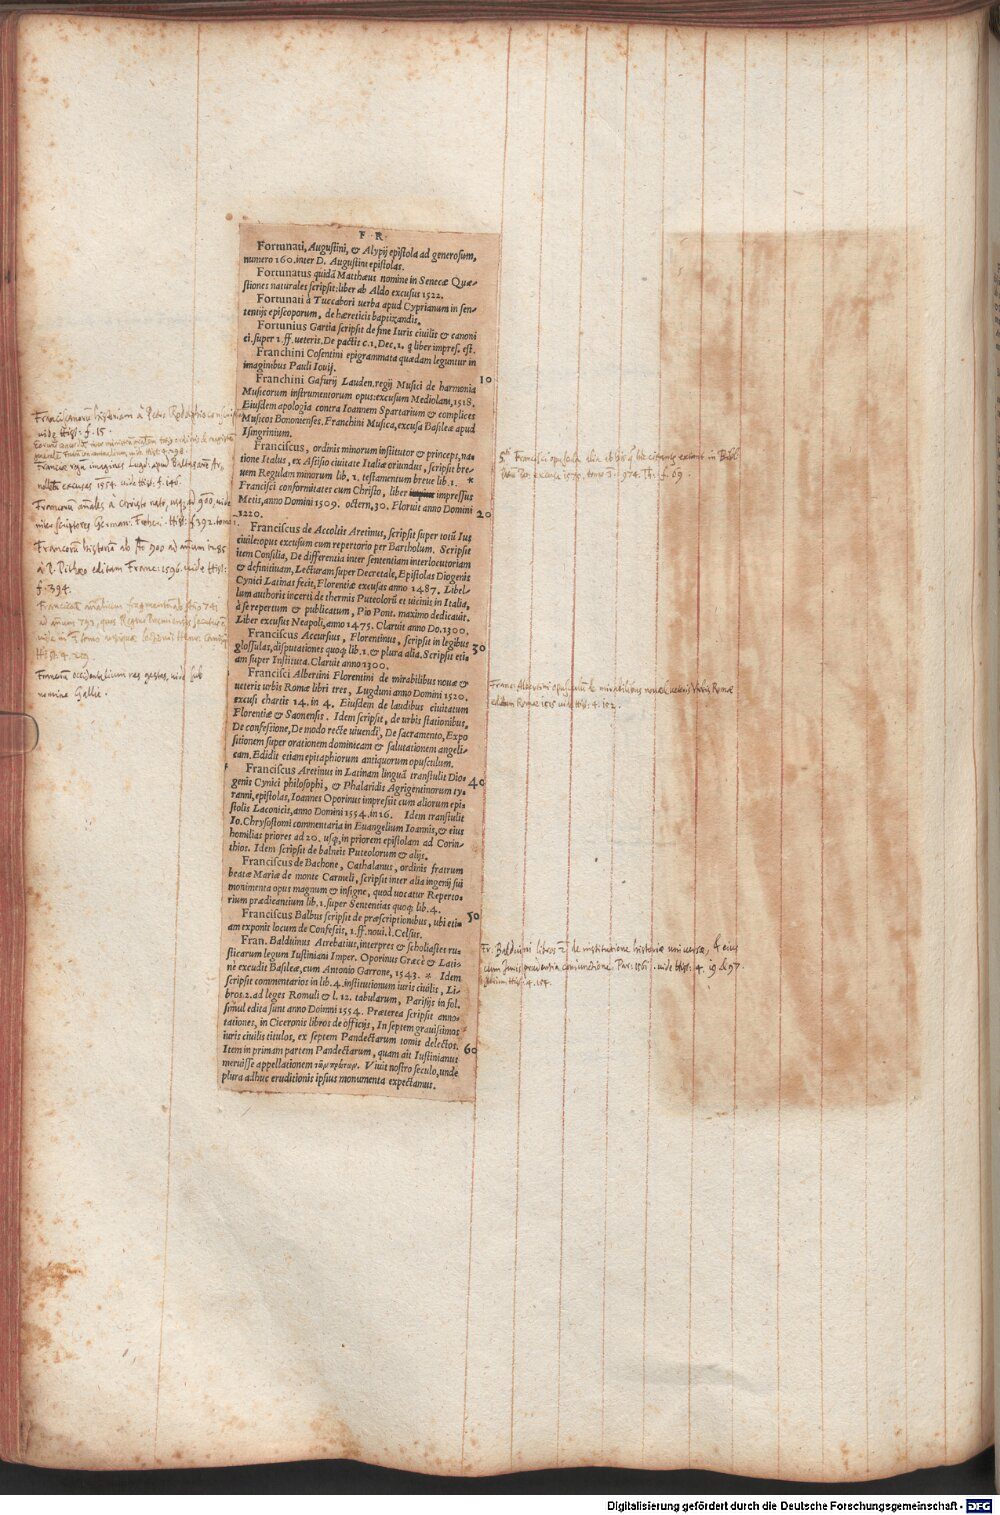 F R
Fortunati, Augustini, & Alypij epistola ad generosum,
numero 160. inter D. Augustini epistolas.
Fortunatus quidã Matthæus nomine in Senecæ Quæ-
stiones naturales scripsit: liber ab Aldo excusus 1522.
Fortunati à Tuccabori uerba apud Cyprianum in sen-
tentijs episcoporum, de hæreticis baptizandis.
Fortunius Gartia scripsit de fine Iuris ciuilis & canoni
ci. super 1. ff. ueteris. De pactis c. 1. Dec. 1. q liber impres. est.
Franchini Cosentini epigrammata quædam leguntur in
imaginibus Pauli Iouij.
10
Franchini Gafurij Lauden. regij Musici de harmonia
Musicorum instrumentorum opus: excusum Mediolani, 1518.
Eiusdem apologia contra Ioannem Spartarium & complices
Musicos Bononienses. Franchini Musica, excusa Basileæ apud
Isingrinium.
Franciscus, ordinis minorum institutor & princeps, na-
tione Italus, ex Assisio ciuitate Italiæ oriundus, scripsit bre-
uem Regulam minorum lib. 1. testamentum breue lib. 1. *
Francisci conformitates cum Christo, liber impressus
Metis, anno Domini 1509. octern. 30. Floruit anno Domini
20
1220.
Franciscus de Accoltis Aretinus, scripsit super totũ Ius
ciuile: opus excusum cum repertorio per Bartholum. Scripsit
item Consilia, De differentia inter sententiam interlocutoriam
& definitiuam, Lecturam super Decretale, Epistolas Diogenis
Cynici Latinas fecit, Florentiæ excusas anno 1487. Libel-
lum authoris incerti de thermis Puteolorũ et uicinis in Italia,
à se repertum & publicatum, Pio Pont. maximo dedicauit.
Liber excusus Neapoli, anno 1475. Claruit anno Do. 1300.
Franciscus Accursius, Florentinus, scripsit in legibus
30
glossulas, disputationes quoq; lib. 1. & plura alia. Scripsit eti-
am super Instituta. Claruit anno 1300.
Francisci Albertini Florentini de mirabilibus nouæ &
ueteris urbis Romæ libri tres, Lugduni anno Domini 1520.
excusi chartis 14. in 4. Eiusdem de laudibus ciuitatum
Florentiæ & Saonensis. Idem scripsit, de urbis stationibus,
De confessione, De modo recte uiuendi, De sacramento, Expo
sitionem super orationem dominicam & salutationem angeli-
cam. Edidit etiam epitaphiorum antiquorum opusculum.
Franciscus Aretinus in Latinam linguã transtulit Dio-
40
genis Cynici philosophi, & Phalaridis Agrigentinorum ty-
ranni, epistolas, Ioannes Oporinus impressit cum aliorum epi-
stolis Laconicis, anno Domini 1554. in 16. Idem transtulit
Io. Chrysostomi commentaria in Euangelium Ioannis, & eius
homilias priores ad 20. usq; in priorem epistolam ad Corin-
thios. Idem scripsit de balneis Puteolorum & alijs.
Franciscus de Bachone, Cathalanus, ordinis fratrum
beatæ Mariæ de monte Carmeli, scripsit inter alia ingenij sui
monimenta opus magnum & insigne, quod uocatur Reperto-
rium prædicantium lib. 1. super Sententias quoq; lib. 4.
50
Franciscus Balbus scripsit de præscriptionibus, ubi eti-
am exponit locum de Confessis, 1. ff. noui. l. Celsus.
Fran. Balduinus Atrebatius, interpres & scholiastes ru-
sticarum legum Iustiniani Imper. Oporinus Græcè & Lati-
nè excudit Basileæ, cum Antonio Garrone, 1543. * Idem
scripsit commentarios in lib. 4. institutionum iuris ciuilis, Li-
bros 2. ad leges Romuli & l. 12. tabularum, Parisijs in fol.
simul edita sunt anno Domini 1554. Præterea scripsit anno-
tationes, in Ciceronis libros de officijs, In septem grauissimos
iuris ciuilis titulos, ex septem Pandectarum tomis delectos.
60
Item in primam partem Pandectarum, quam ait Iustinianus
meruisse appellationem. Viuit nostro seculo, unde
plura adhuc eruditionis ipsius monumenta expectamus.
Franciscanorũ historiam à Petro Rodulphio
uide Hist: f. 15.
Franciæ regũ imagines Lugd: apud Baltazarẽ Ar
nolletũ excusas 1554. uide Hist: f. 146.
Francorũ añales à Christo nato, usq; ad 900, uide
inter scriptores German: Freheri. Hist: f 392. tomo 1.
Francorũ historia ab 900 ad annum
à P. Pithæo editam Franc: 1596. uide Hist:
f. 394.
Hist: 4.
res gestas, uide sub
nomine Galliæ.
Francisci opuscula extant in Bibl:
excusæ f. 69
Franc: Albertini opusculũ de mirabilibus nouæ & ueteris Vrbis Romæ
editum Romæ 1515 uide Hist: 4. 152.
Fr. Balduini libros 2 de institutione historiæ uniuersæ, & eius
cum Jurisprudentia coniunctione. Par: 1561. uide Hist: 4. 19 & 97
Hist: 4. 154.
Digitalisierung gefördert durch die Deutsche Forschungsgemeinschaft - DFG